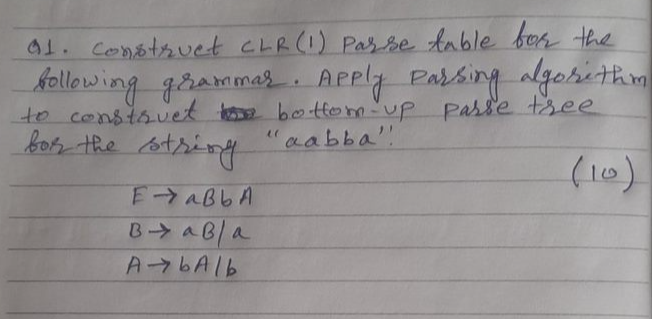 Q1. Construct CLR(1) Parse table for the
following grammar. Apply Parsing algorithm
to construct bottom-up parse tree
for the string "aabba".
(10)
E → aBbA
B → aB/a
A → bA/b